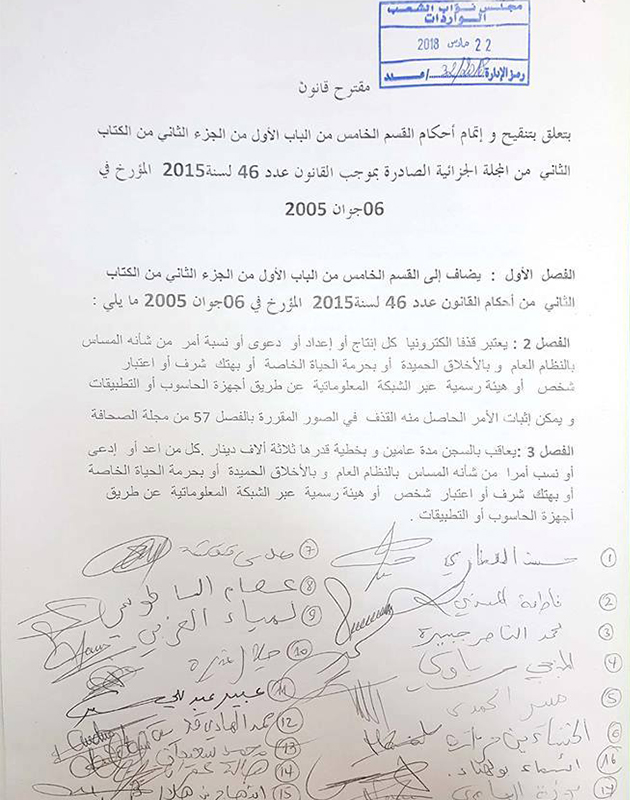 مجلس نواب الشعب
الـواردات
22 مارس 2018
رمز الإدارة /عـــدد
مقترح قانون
يتعلق بتنقيح و إتمام أحكام القسم الخامس من الباب الأول من الجزء الثاني من الكتاب
الثاني من المجلة الجزائية الصادرة بموجب القانون عدد 46 لسنة2015 المؤرخ في
06جوان 2005
الفصل الأول : يضاف إلى القسم الخامس من الباب الأول من الجزء الثاني من الكتاب
الثاني من أحكام القانون عدد 46 لسنة2015 المؤرخ في 06جوان 2005 ما يلي :
الفصل 2 : يعتبر قذفا الكترونيا كل إنتاج أو إعداد أو دعوى أو نسبة أمر من شأنه المساس
بالنظام العام و بالأخلاق الحميدة أو بحرمة الحياة الخاصة أو بهتك شرف أو اعتبار
شخص أو هيئة رسمية عبر الشبكة المعلوماتية عن طريق أجهزة الحاسوب أو التطبيقات
و يمكن إثبات الأمر الحاصل منه القذف في الصور المقررة بالفصل 57 من مجلة الصحافة
الفصل 3 :يعاقب بالسجن مدة عامين و بخطية قدرها ثلاثة ألاف دينار .كل من اعد أو إدعى
أو نسب أمرا من شأنه المساس بالنظام العام و بالأخلاق الحميدة أو بحرمة الحياة الخاصة
أو بهتك شرف أو اعتبار شخص أو هيئة رسمية عبر الشبكة المعلوماتية عن طريق
أجهزة الحاسوب أو التطبيقات .
1
2 فاطمة المسدي
3 محمد الناصر جبيرة
4 المنجي
5
6 الخنساء بن
16 أسماء
17
7
8 عصام
9 لمياء
10 جلال
11 عبير
12 محمد الهادي
13 محمد سعيدان
14 هالة عمران
15 ابتهاج بن هلال